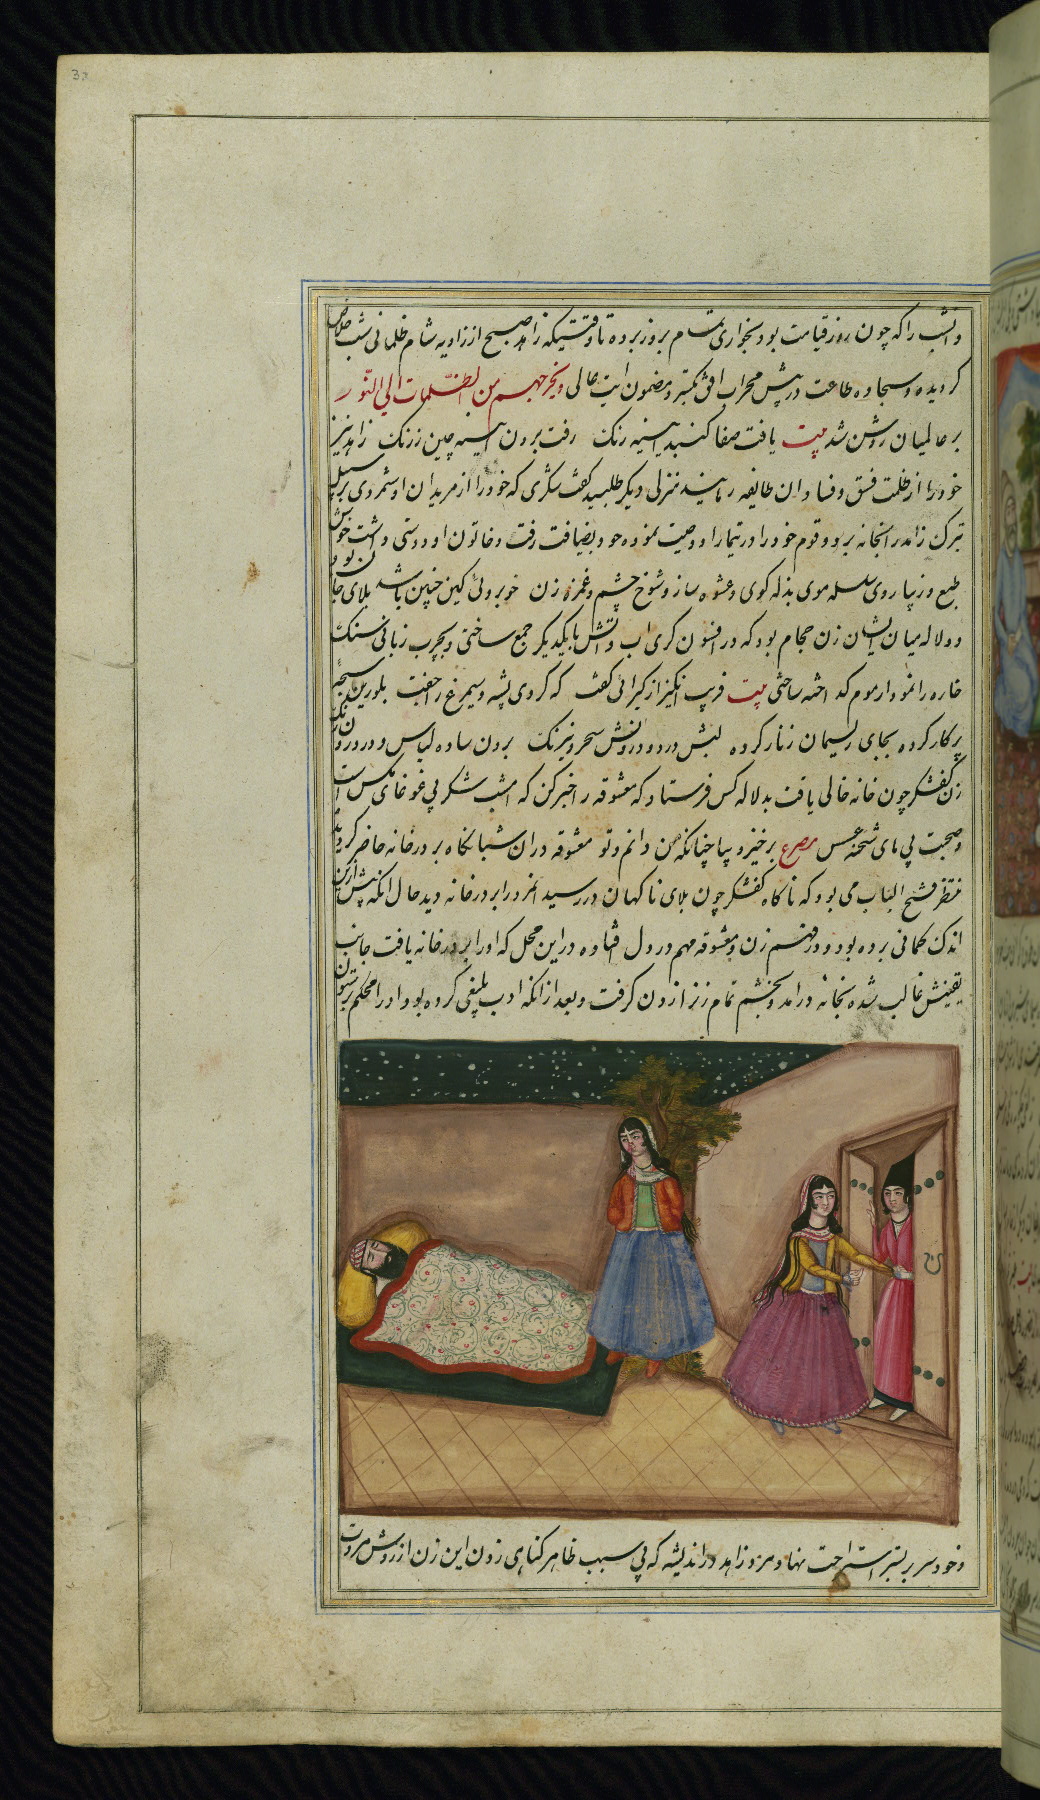 3
و انشب را که چون روز قیامت بود بخواری تمام بروز برده تا وقتیکه زاهد صبح از زاویه شام ظلمانی شب خلاص
کردیده و سجاده طاعت در پیش محراب افق بکسترد مضمون ایت عالی و یخرجهم من الظلمات الی النّور
بر عالمیان روشن شد بیت یافت صفا کنبد ایینه رنک رفت برون ایینه چین ز زنک زاهد نیز
خود را از ظلمت فسق و فساد ان طایفه رهانید منزلی دیکر طلبید کفشکری که خود را از مریدان او شمردی بر سبیل
تبرک زاهد را بخانه برد و قوم خود را در تیمار او وصیت نموده خود بضیافت رفت و خاتون او دوستی داشت خوش
طبع و زیبا روی سلسله موی بذله کوی و عشوه ساز و شوخ چشم و غمزه زن خوبروئی کین چنین باشد بلای جان بود
و دلاله میان ایشان زن حجام بود که در افسون کری اب و اتش با یکدیکر جمع ساختی و بچرب زبانی سنک
خاره را نموداروم موم کداخته ساختی بیت فریب انکیز از کیرائی کفت که کردی پشه و سیمرغ را جفت بلورین سبحه
پر کار کرده بجای ریسمان زنار کرده لبش در ورد و درونش سحر و نیرنک برون ساده لباس و در درون رنک
زن کفشکر چون خانه خالی یافت بدلاله کس فرستاد که معشوقه را خبر کن که امشب شکر بی غوغای مکس است
و صحبت بی های شحنه و عسس مصرع برخیز و بیا چنانکه من دانم و تو معشوقه در ان شبانکاه بر در خانه حاضر کردید
منتظر فتح الباب می بود که ناکاه کفشکر چون بلای ناکهان در رسید انمرد را بر در خانه دید حال انکه پیش از این
اندک کمانی برده بود و در فهم زن و معشوقه مهم در دل افتاده در این محل که او را بر در خانه یافت جانب
یقینش غالب شده بخانه درامد و بخشم تمام زن را زدن کرفت و بعد از انکه ادب بلیغی کرده بود او را محکم بر ستون
و خود سر بر بستر استراحت نهاد و مرد زاهد در اندیشه که بی سبب ظاهر کناهی زدن این زن از روش مروت